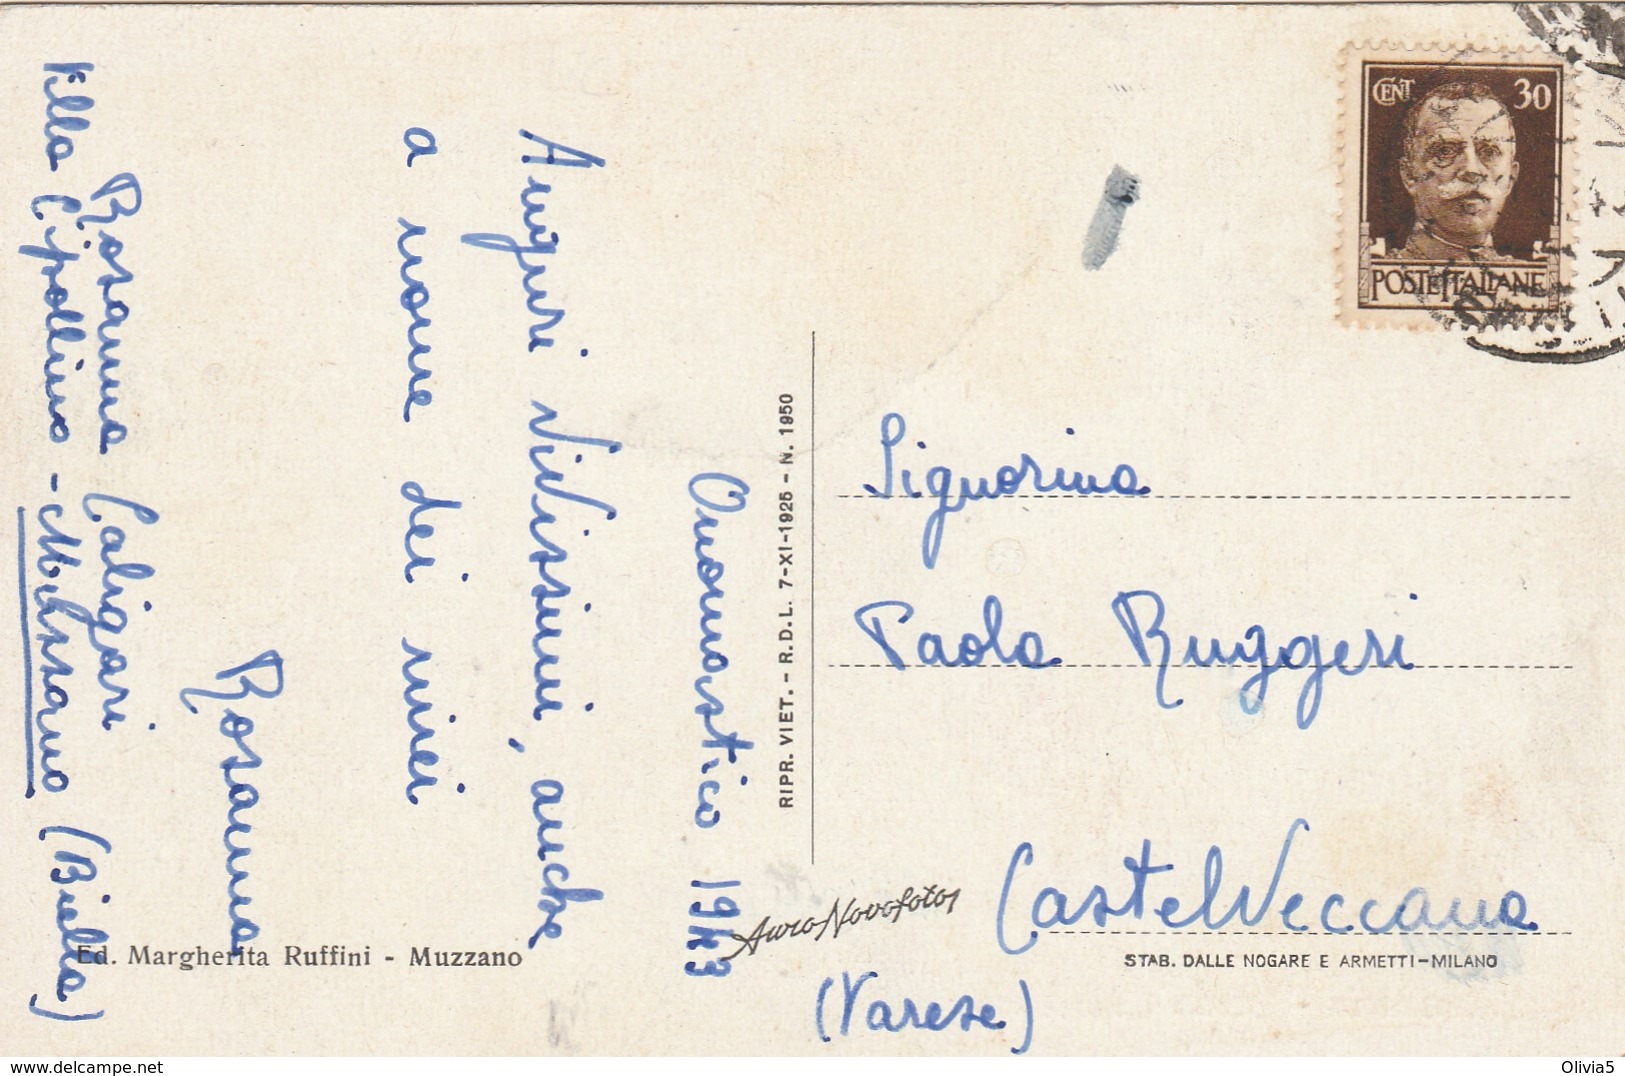 Onomastico 1943
Auguri vivissimi, anche
a nome dei miei
Rosanna
Rosanna Caligari
Villa Cipollino - Muzzano (Biella)
Ed. Margherita Ruffini - Muzzano
RIPR. VIET. - R. D. L. 7-XI-1925 - N. 1950
AuroNovofotos
CENT 30
POSTE ITALIANE
Signorina
Paola Ruggeri
Castelveccana
(Varese)
STAB. DALLE NOGARE E ARMETTI-MILANO
www.delcampe.net
Olivia5